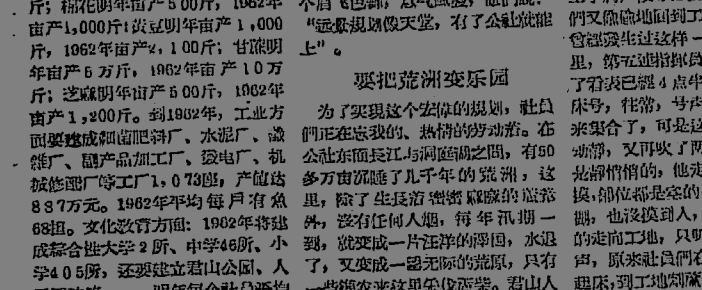 斤；棉花明年亩产500斤，1962年
亩产1,000斤；黄豆明年亩产1,000
斤，1962年亩产2,100斤；甘蔗明
年亩产5万斤，1962年亩产10万
斤；芝麻明年亩产500斤，1962年
亩产1,200斤。到1962年，工业方
面要建成细菌肥料厂、水泥厂、
厂、副产品加工厂、发电厂、机
械修配厂等工厂1,073座，产值达
887万元。1962年平均每月有鱼
68担。文化教育方面：1962年将建
成综合性大学2所、中学46所、小
学405所，还要建立君山公园、人
“远景规划像天堂，有了公社就能
上”。
要把荒洲变乐园
为了实现这个宏伟的规划，社員
們正在忘我的、热情的劳动着。在
公社东面長江与洞庭湖之間，有50
多万亩沉睡了几千年的荒洲，这
里，除了生長着密密麻麻的芦葦
外，沒有任何人烟，每年汛期一
到，就变成一片汪洋的澤国，水退
了，又变成一望无际的荒原，只有
們又像偷地回到工
曾經發生过这样一
里，第五
了看表已經4点半
床号，往常，号声
来集合了，可是这
动靜，又再吹了两
是靜悄悄的，他走
摸，鋪位都是空的
個，也沒摸到人，
的走向工地，只听
声，原来社員們在
起床，到工地